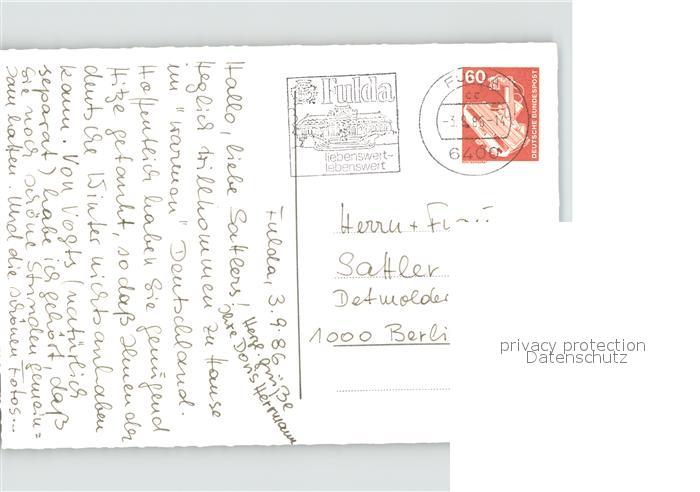 Fulda, 3.9.86
Hallo, liebe Sattlers!
Herzlich willkommen zu Hause
im "warmen" Deutschland.
Hoffentlich haben Sie genügend
Hitze getankt, so daß Ihnen der
deutsche Winter nichts anhaben
kann. Von Vogts (natürlich
separat) habe ich gehört, daß
Sie noch schöne Stunden gemein=
sam hatten. Und die schönen Fotos...
Herzl. Grüße
Ihre Doris Herrmann
Fulda
liebenswert-
lebenswert
6400
60
DEUTSCHE BUNDESPOST
Herrn + Frau
Sattler
Detmolder
1000 Berli
privacy protection
Datenschutz